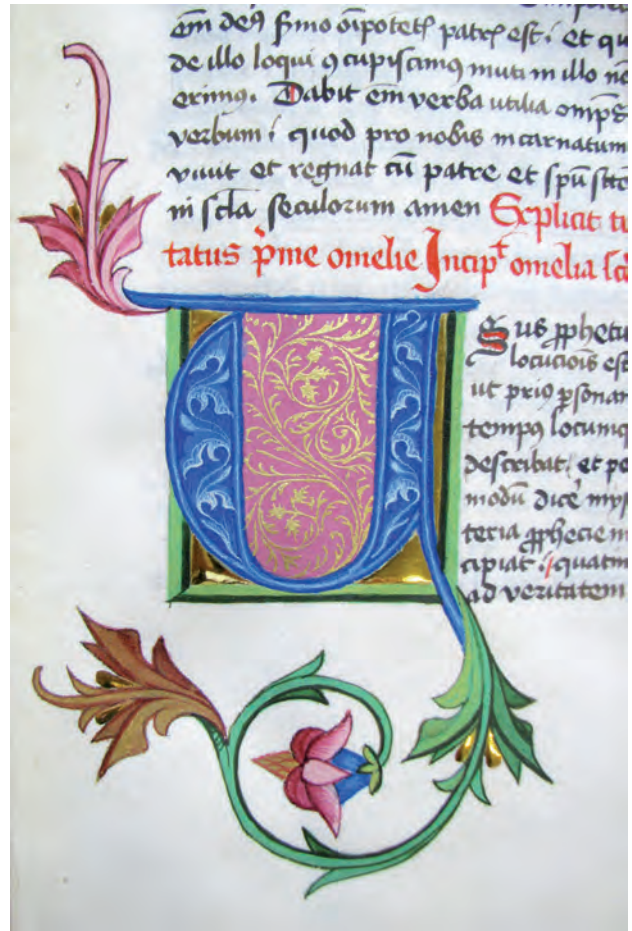 em̄ deꝰ ſmo oīpotētꝭ patꝭ est. et qu
de illo loqui ꝯcupiſcimꝰ muti in illo nō
erimꝰ. Dabit em̄ verba utilia omīpō
verbum. quod pro nobis incarnatum
viuit et regnat cū patre et ſpū ſctō
in ſcla ſeculorum amen Explicit tr
tatus pͥme omelie Incipᵗ omelia ſcd
USus ꝓphetic
locucōis eſt
ut priꝰ ꝑſonam
tempꝰ locumq
deſcribat. et po
modū dicē myſ
teria ꝓphecie in
cipiat. quatin
ad veritatem